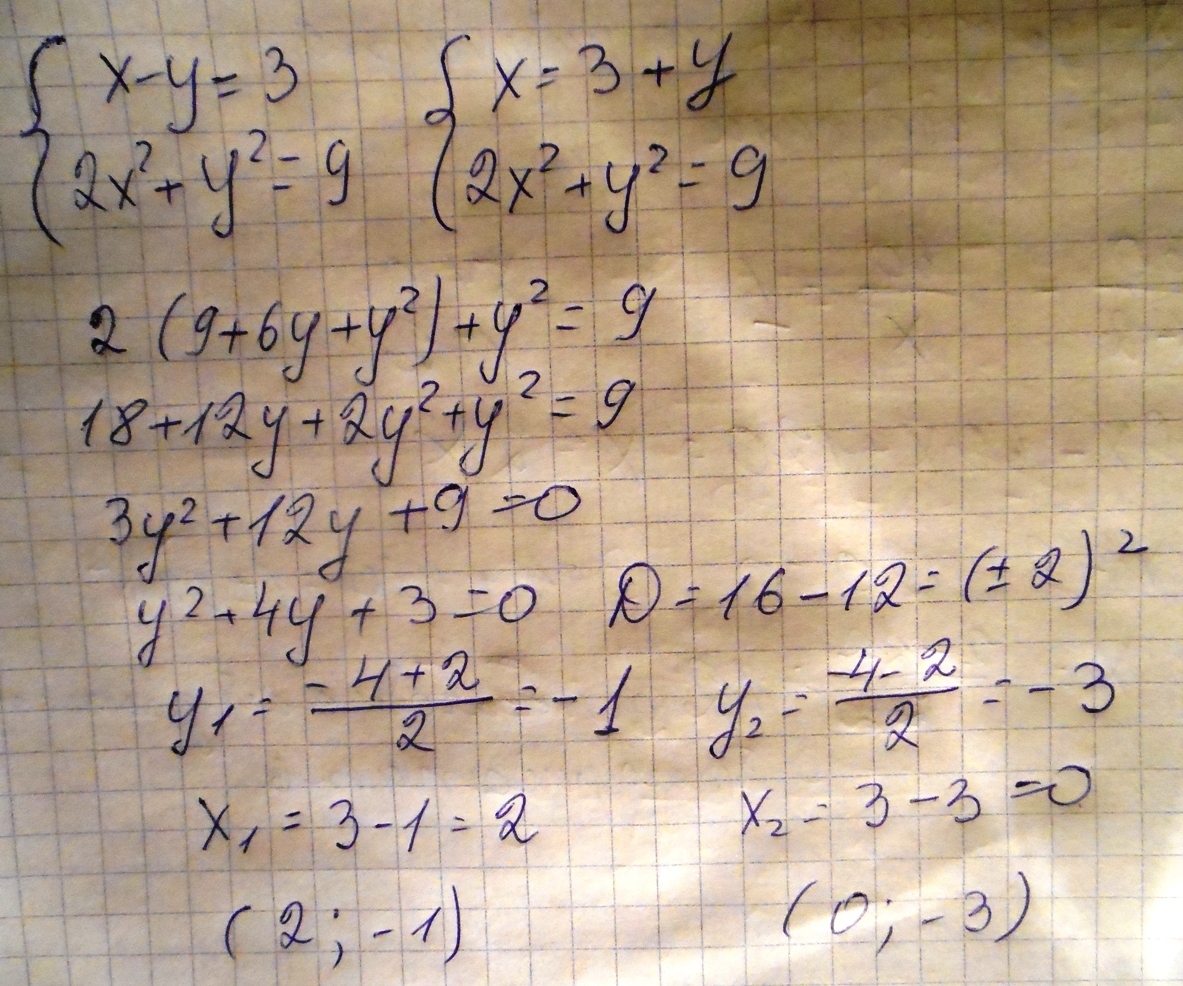 { x-y=3 { x=3+y
2x²+y²=9 2x²+y²=9
2(9+6y+y²)+y²=9
18+12y+2y²+y²=9
3y²+12y+9=0
y²+4y+3=0 D=16-12=(±2)²
y₁=(-4+2)/2=-1 y₂=(-4-2)/2=-3
x₁=3-1=2 x₂=3-3=0
(2;-1) (0;-3)